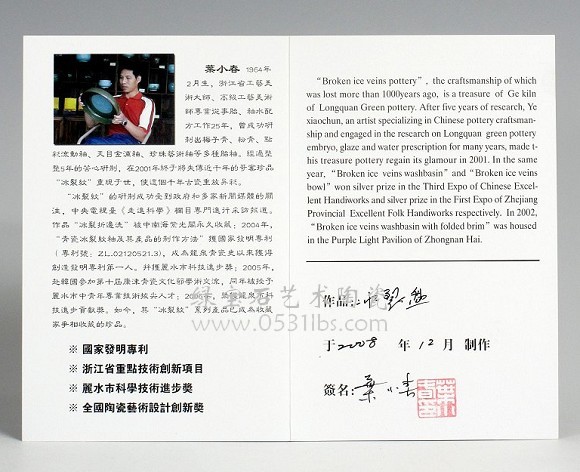 葉小春 1964年
2月生，浙江省工藝美
術大師、高級工藝美術
師專業從事胎、釉水配
方工作25年，曾成功研
制出梅子青、粉青、點
彩流動釉、天目金溪釉、珍珠藝術釉等多種胎釉，經過整
整5年的苦心研制，在2001年終于將失傳近千年的哥窯珍品
“冰裂紋”重現于世，使這個千年古瓷重放異彩。
“冰裂紋”的研制成功受到政府和多家新聞媒體的關
注，中央電視臺《走進科學》欄目專門進行采訪報道。
作品“冰裂折邊洗”被中南海紫光閣永久收藏；2004年，
“青瓷冰裂紋釉及其產品的制作方法”獲國家發明專利
（專利號：ZL.02120521.3），成為龍泉青瓷史以來獲得
創造發明專利第一人。并獲麗水市科技進步獎；2005年，
赴韓國參加第十屆康津青瓷文化節學術交流，同年被授予
麗水市中青年專業技術拔尖人才；
技進步貢獻獎。如今，其“冰裂紋”系列產品已成為收藏
家爭相收藏的珍品。
※ 國家發明專利
※ 浙江省重點技術創新項目
※ 麗水市科學技術進步獎
※ 全國陶瓷藝術設計創新獎
“Broken ice veins pottery”, the craftsmanship of which
was lost more than 1000years ago, is a treasure of Ge kiln
of Longquan Green pottery. After five years of research, Ye
xiaochun, an artist specializing in Chinese pottery craftsman-
ship and engaged in the research on Longquan green pottery
embryo, glaze and water prescription for many years, made t-
his treasure pottery regain its glamour in 2001. In the same
year, “Broken ice veins washbasin” and “Broken ice veins
bowl” won silver prize in the Third Expo of Chinese Excel-
lent Handiworks and silver prize in the First Expo of Zhejiang
Provincial Excellent Folk Handiworks respectively. In 2002,
“Broken ice veins washbasin with folded brim” was housed
in the Purple Light Pavilion of Zhongnan Hai.
作品:
于2008 年 12月 制作
簽名: 葉小春
绿宝石艺术陶瓷
www.0531lbs.com